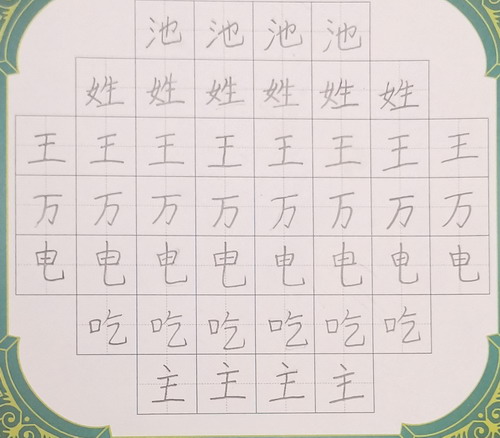 池池池池
姓姓姓姓姓姓
王王王王王王王王
万万万万万万万万
电电电电电电电电
吃吃吃吃吃吃
主主主主